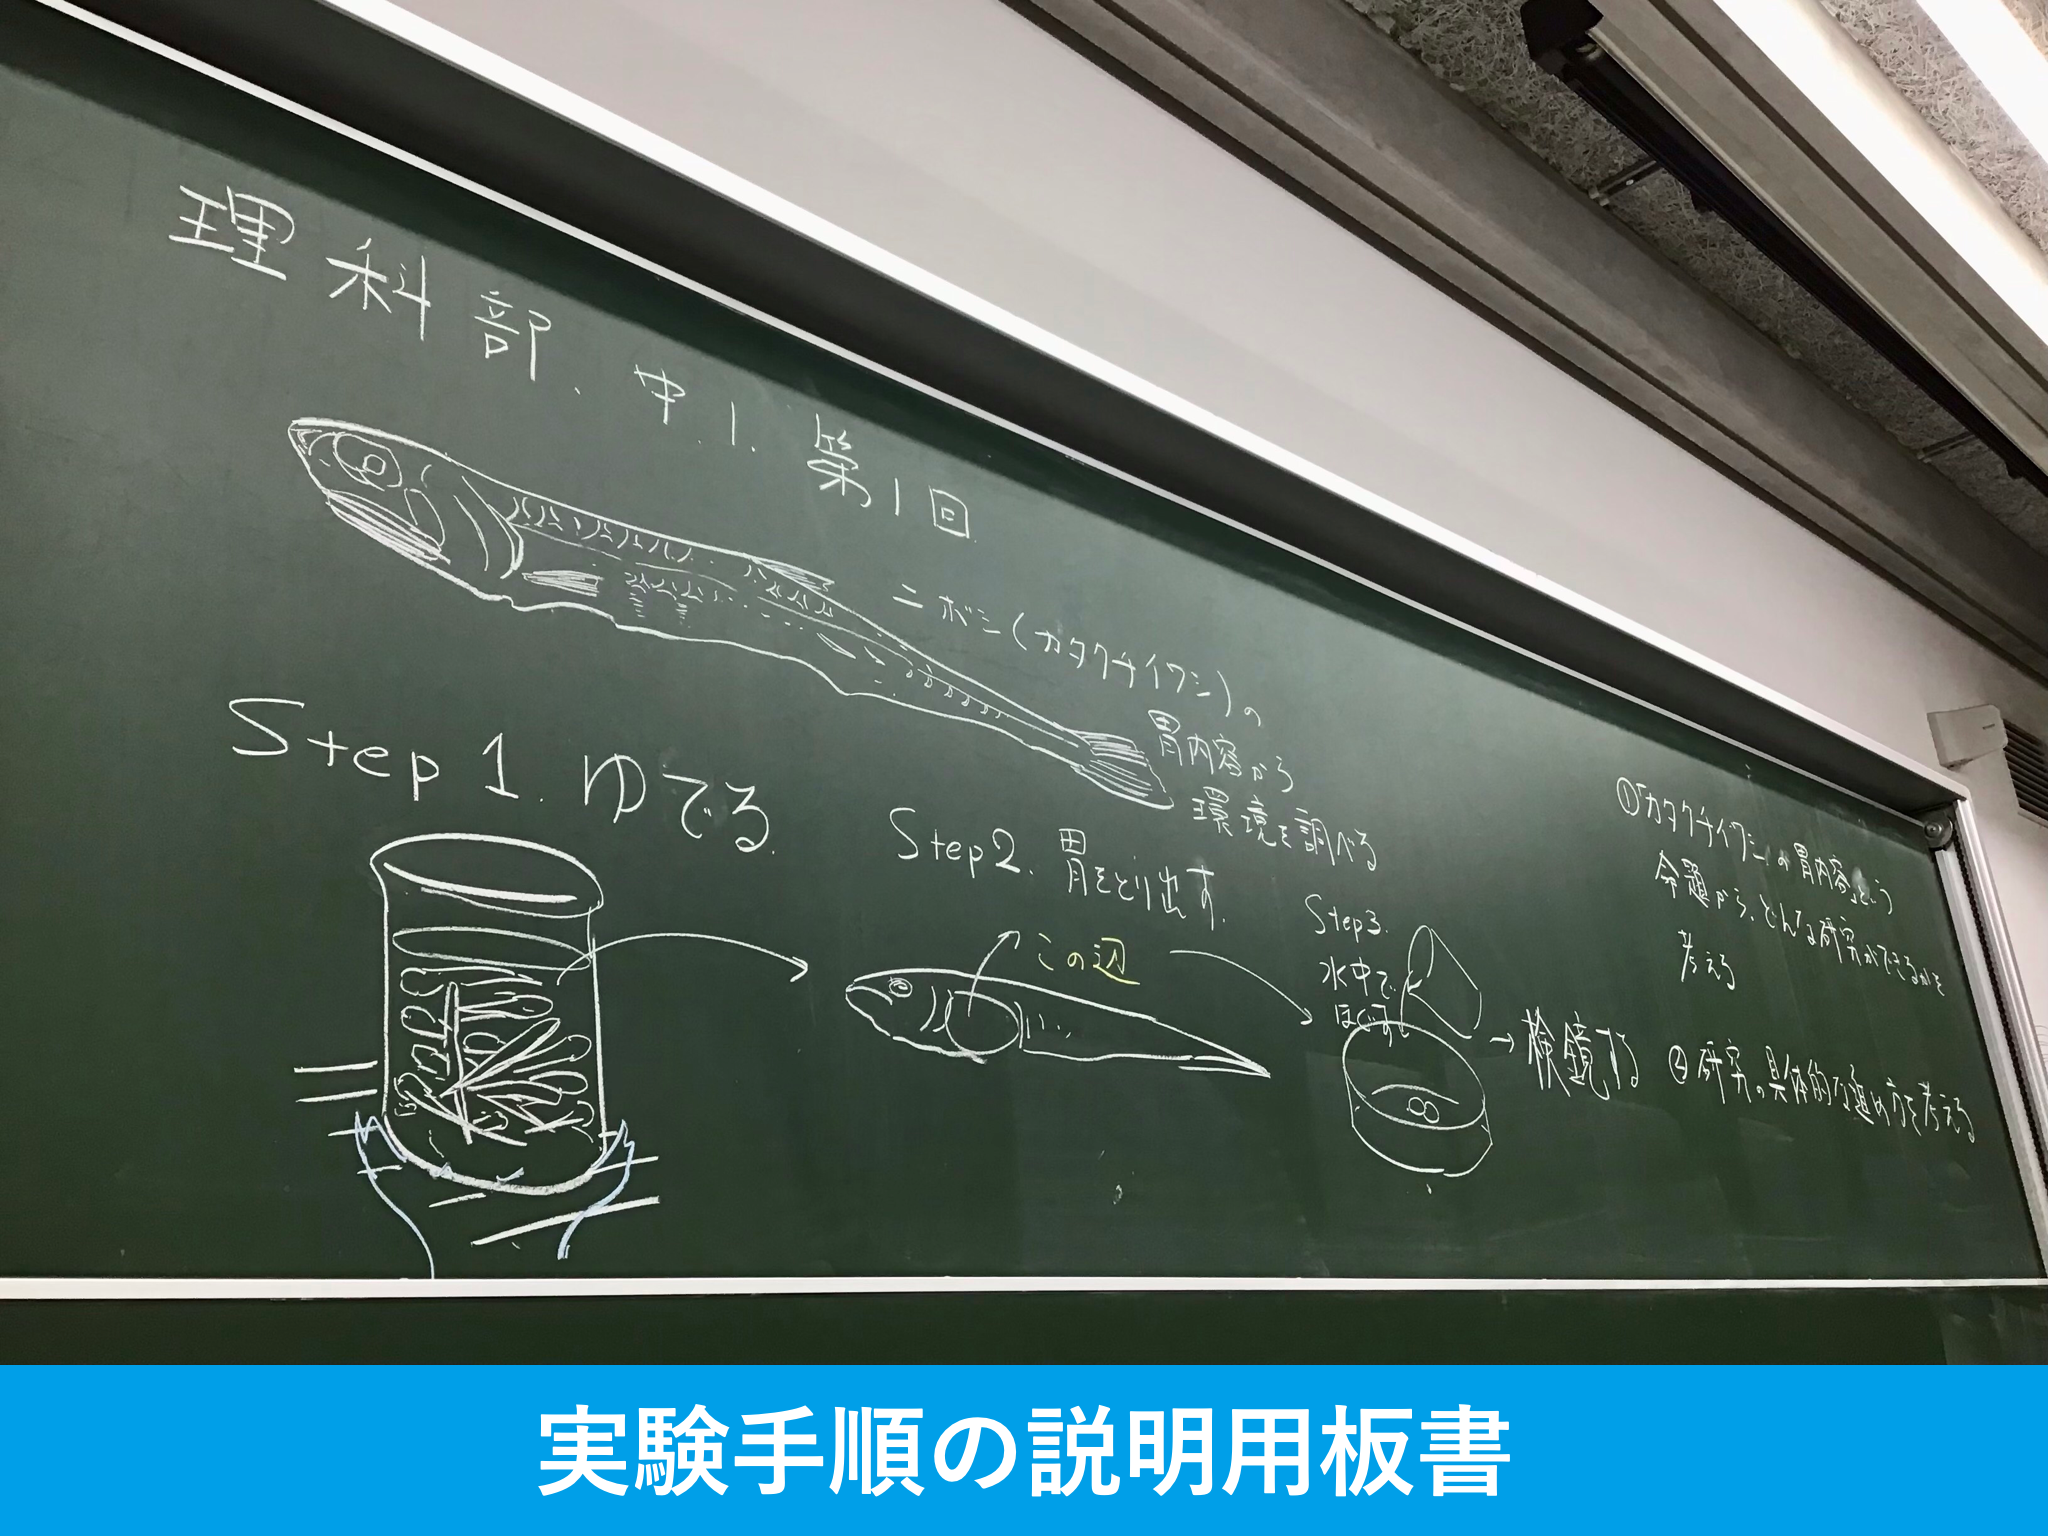 理科部、中.1.第1回
ニボシ(カタクチイワシ)の
胃内容から
環境を調べる
Step 1. ゆでる.
Step 2. 胃をとり出す.
この辺
Step 3.
水中で
ほぐす
→検鏡する
①「カタクチイワシの胃内容」という
命題から、どんな研究ができるかを
考える
②研究の具体的な進め方を考える
実験手順の説明用板書